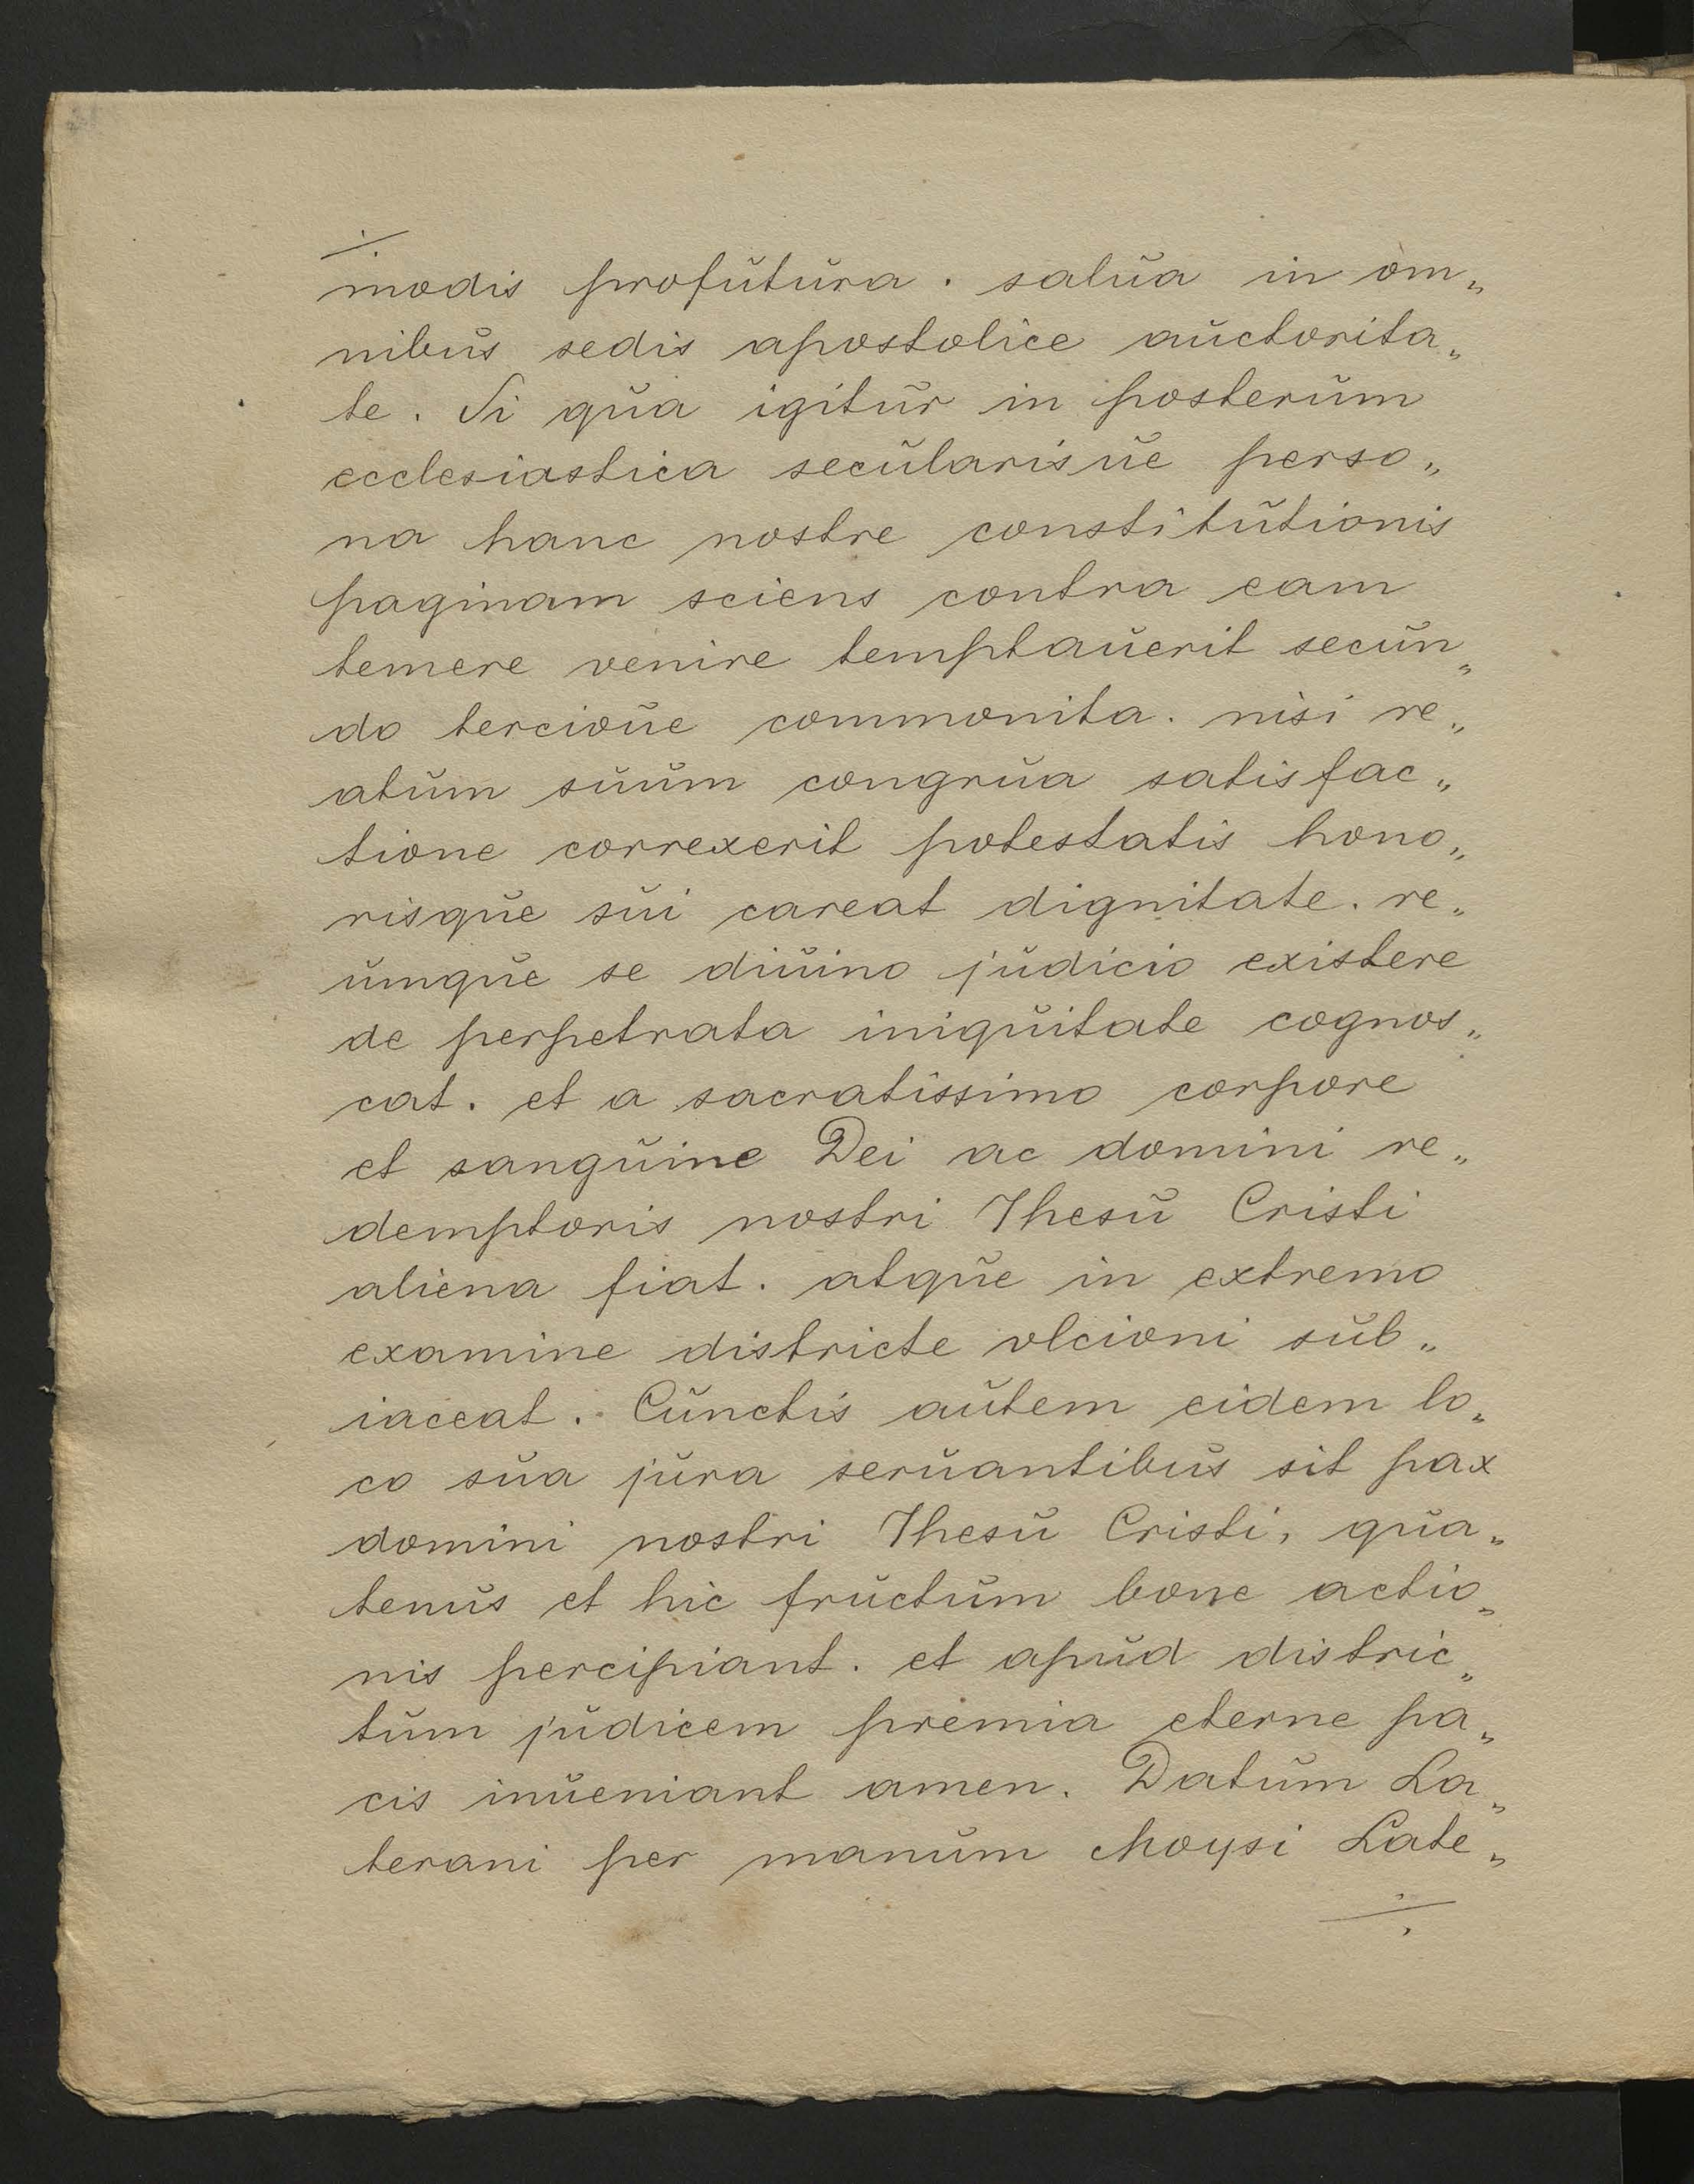 ./.
modis profutura . salua in om„
nibus sedis apostolice auctorita„
te . Si qua igitur in posterum
ecclesiastica secularisue perso„
na hanc nostre constitutionis
paginam sciens contra eam
temere venire temptauerit secun„
do tercioue commonita . nisi re„
atum suum congrua satisfac„
tione correxerit potestatis hono„
risque sui careat dignitate . re„
umque se diuino judicio existere
de perpetrata iniquitate cognos„
cat . et a sacratissimo corpore
et sanguine Dei ac domini re„
demptoris nostri Ihesu Cristi
aliena fiat . atque in extremo
examine districte vlcioni sub„
iaceat . Cunctis autem eidem lo„
co sua jura seruantibus sit pax
domini nostri Ihesu Cristi, qua„
tenus et hic fructum bone actio„
nis percipiant . et apud distric„
tum judicem premia eterne pa„
cis inueniant amen . Datum La„
terani per manum Moysi Late„
./.